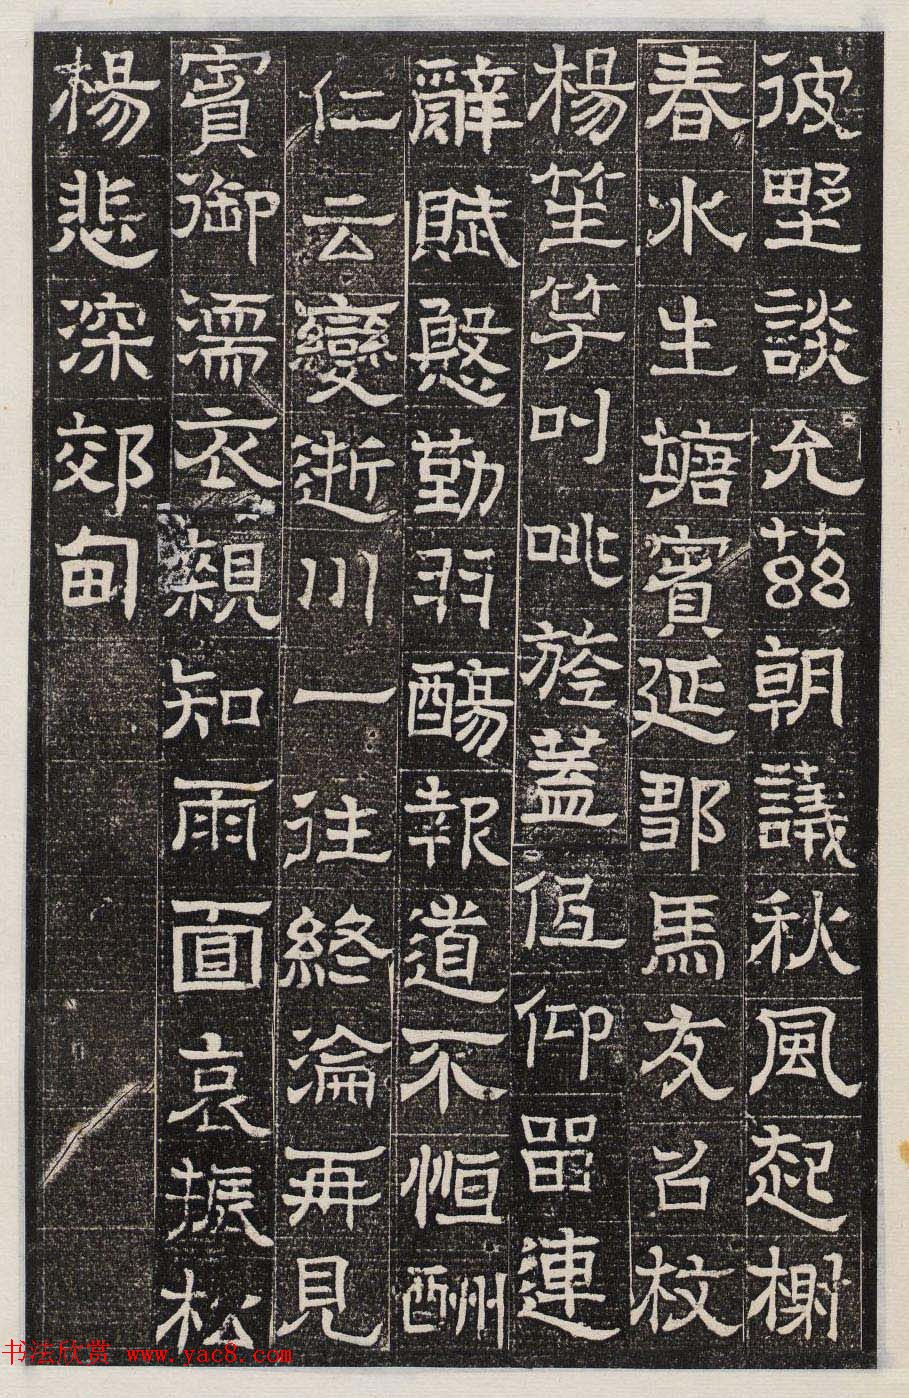 彼野談允茲朝議秋風起榭
春水生塘賓延鄒馬友召枚
楊笙竽叫咷旍蓋低仰留連
辭賦慇勤羽觴報道不恒酬
仁云變逝川一往終淪再見
賓御濡衣親知雨面哀振松
楊悲深郊甸
书法欣赏 www.yac8.com